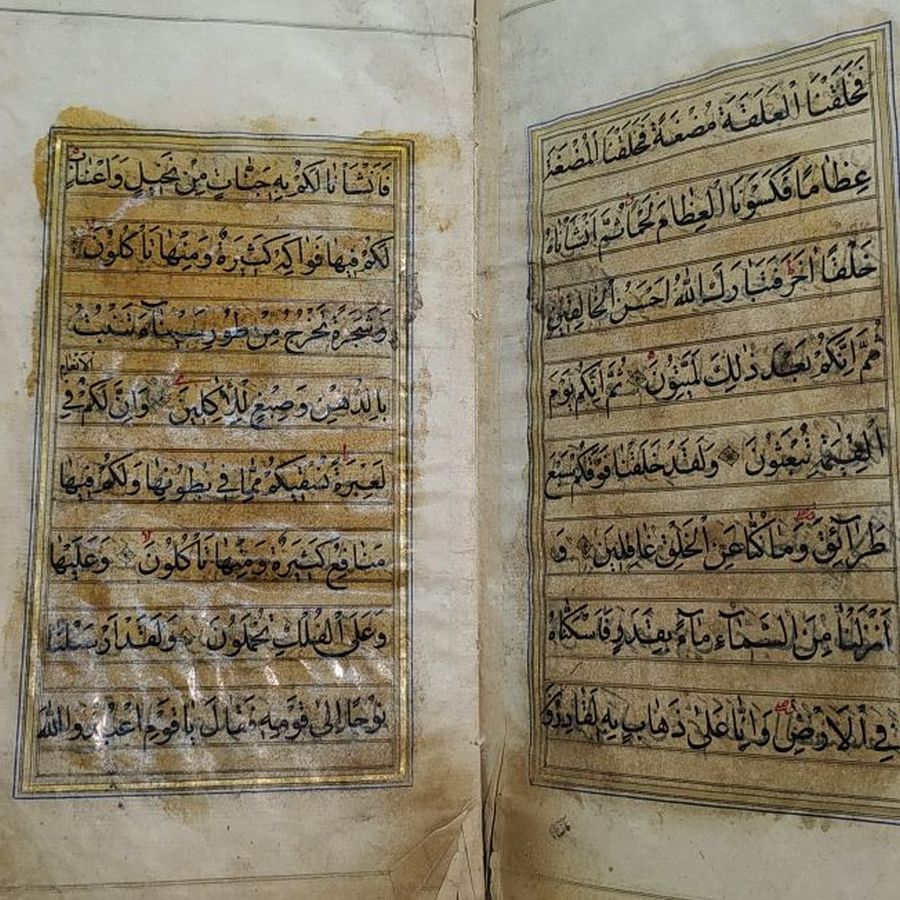 فَخَلَقْنَا الْعَلَقَةَ مُضْغَةً فَخَلَقْنَا الْمُضْغَةَ
عِظَامًا فَكَسَوْنَا الْعِظَامَ لَحْمًا ثُمَّ اَنْشَاْنَاهُ
خَلْقًا اٰخَرَ فَتَبَارَكَ اللّٰهُ اَحْسَنُ الْخَالِقِينَ
ثُمَّ اِنَّكُمْ بَعْدَ ذٰلِكَ لَمَيِّتُونَ ثُمَّ اِنَّكُمْ يَوْمَ
الْقِيٰمَةِ تُبْعَثُونَ وَلَقَدْ خَلَقْنَا فَوْقَكُمْ سَبْعَ
طَرَآئِقَ وَمَا كُنَّا عَنِ الْخَلْقِ غَافِلِينَ وَ
اَنْزَلْنَا مِنَ السَّمَآءِ مَآءً بِقَدَرٍ فَاَسْكَنَّاهُ
فِي الْاَرْضِ وَاِنَّا عَلٰى ذَهَابٍ بِهِ لَقَادِرُونَ
فَاَنْشَاْنَا لَكُمْ بِهِ جَنَّاتٍ مِنْ نَخِيلٍ وَاَعْنَابٍ
لَكُمْ فِيهَا فَوَاكِهُ كَثِيرَةٌ وَمِنْهَا تَاْكُلُونَ
وَشَجَرَةً تَخْرُجُ مِنْ طُورِ سَيْنَآءَ تَنْبُتُ
بِالدُّهْنِ وَصِبْغٍ لِلْاٰكِلِينَ وَاِنَّ لَكُمْ فِي الْاَنْعَامِ
لَعِبْرَةً نُسْقِيكُمْ مِمَّا فِي بُطُونِهَا وَلَكُمْ فِيهَا
مَنَافِعُ كَثِيرَةٌ وَمِنْهَا تَاْكُلُونَ وَعَلَيْهَا
وَعَلَى الْفُلْكِ تُحْمَلُونَ وَلَقَدْ اَرْسَلْنَا
نُوحًا اِلٰى قَوْمِهِ فَقَالَ يَا قَوْمِ اعْبُدُوا اللّٰهَ